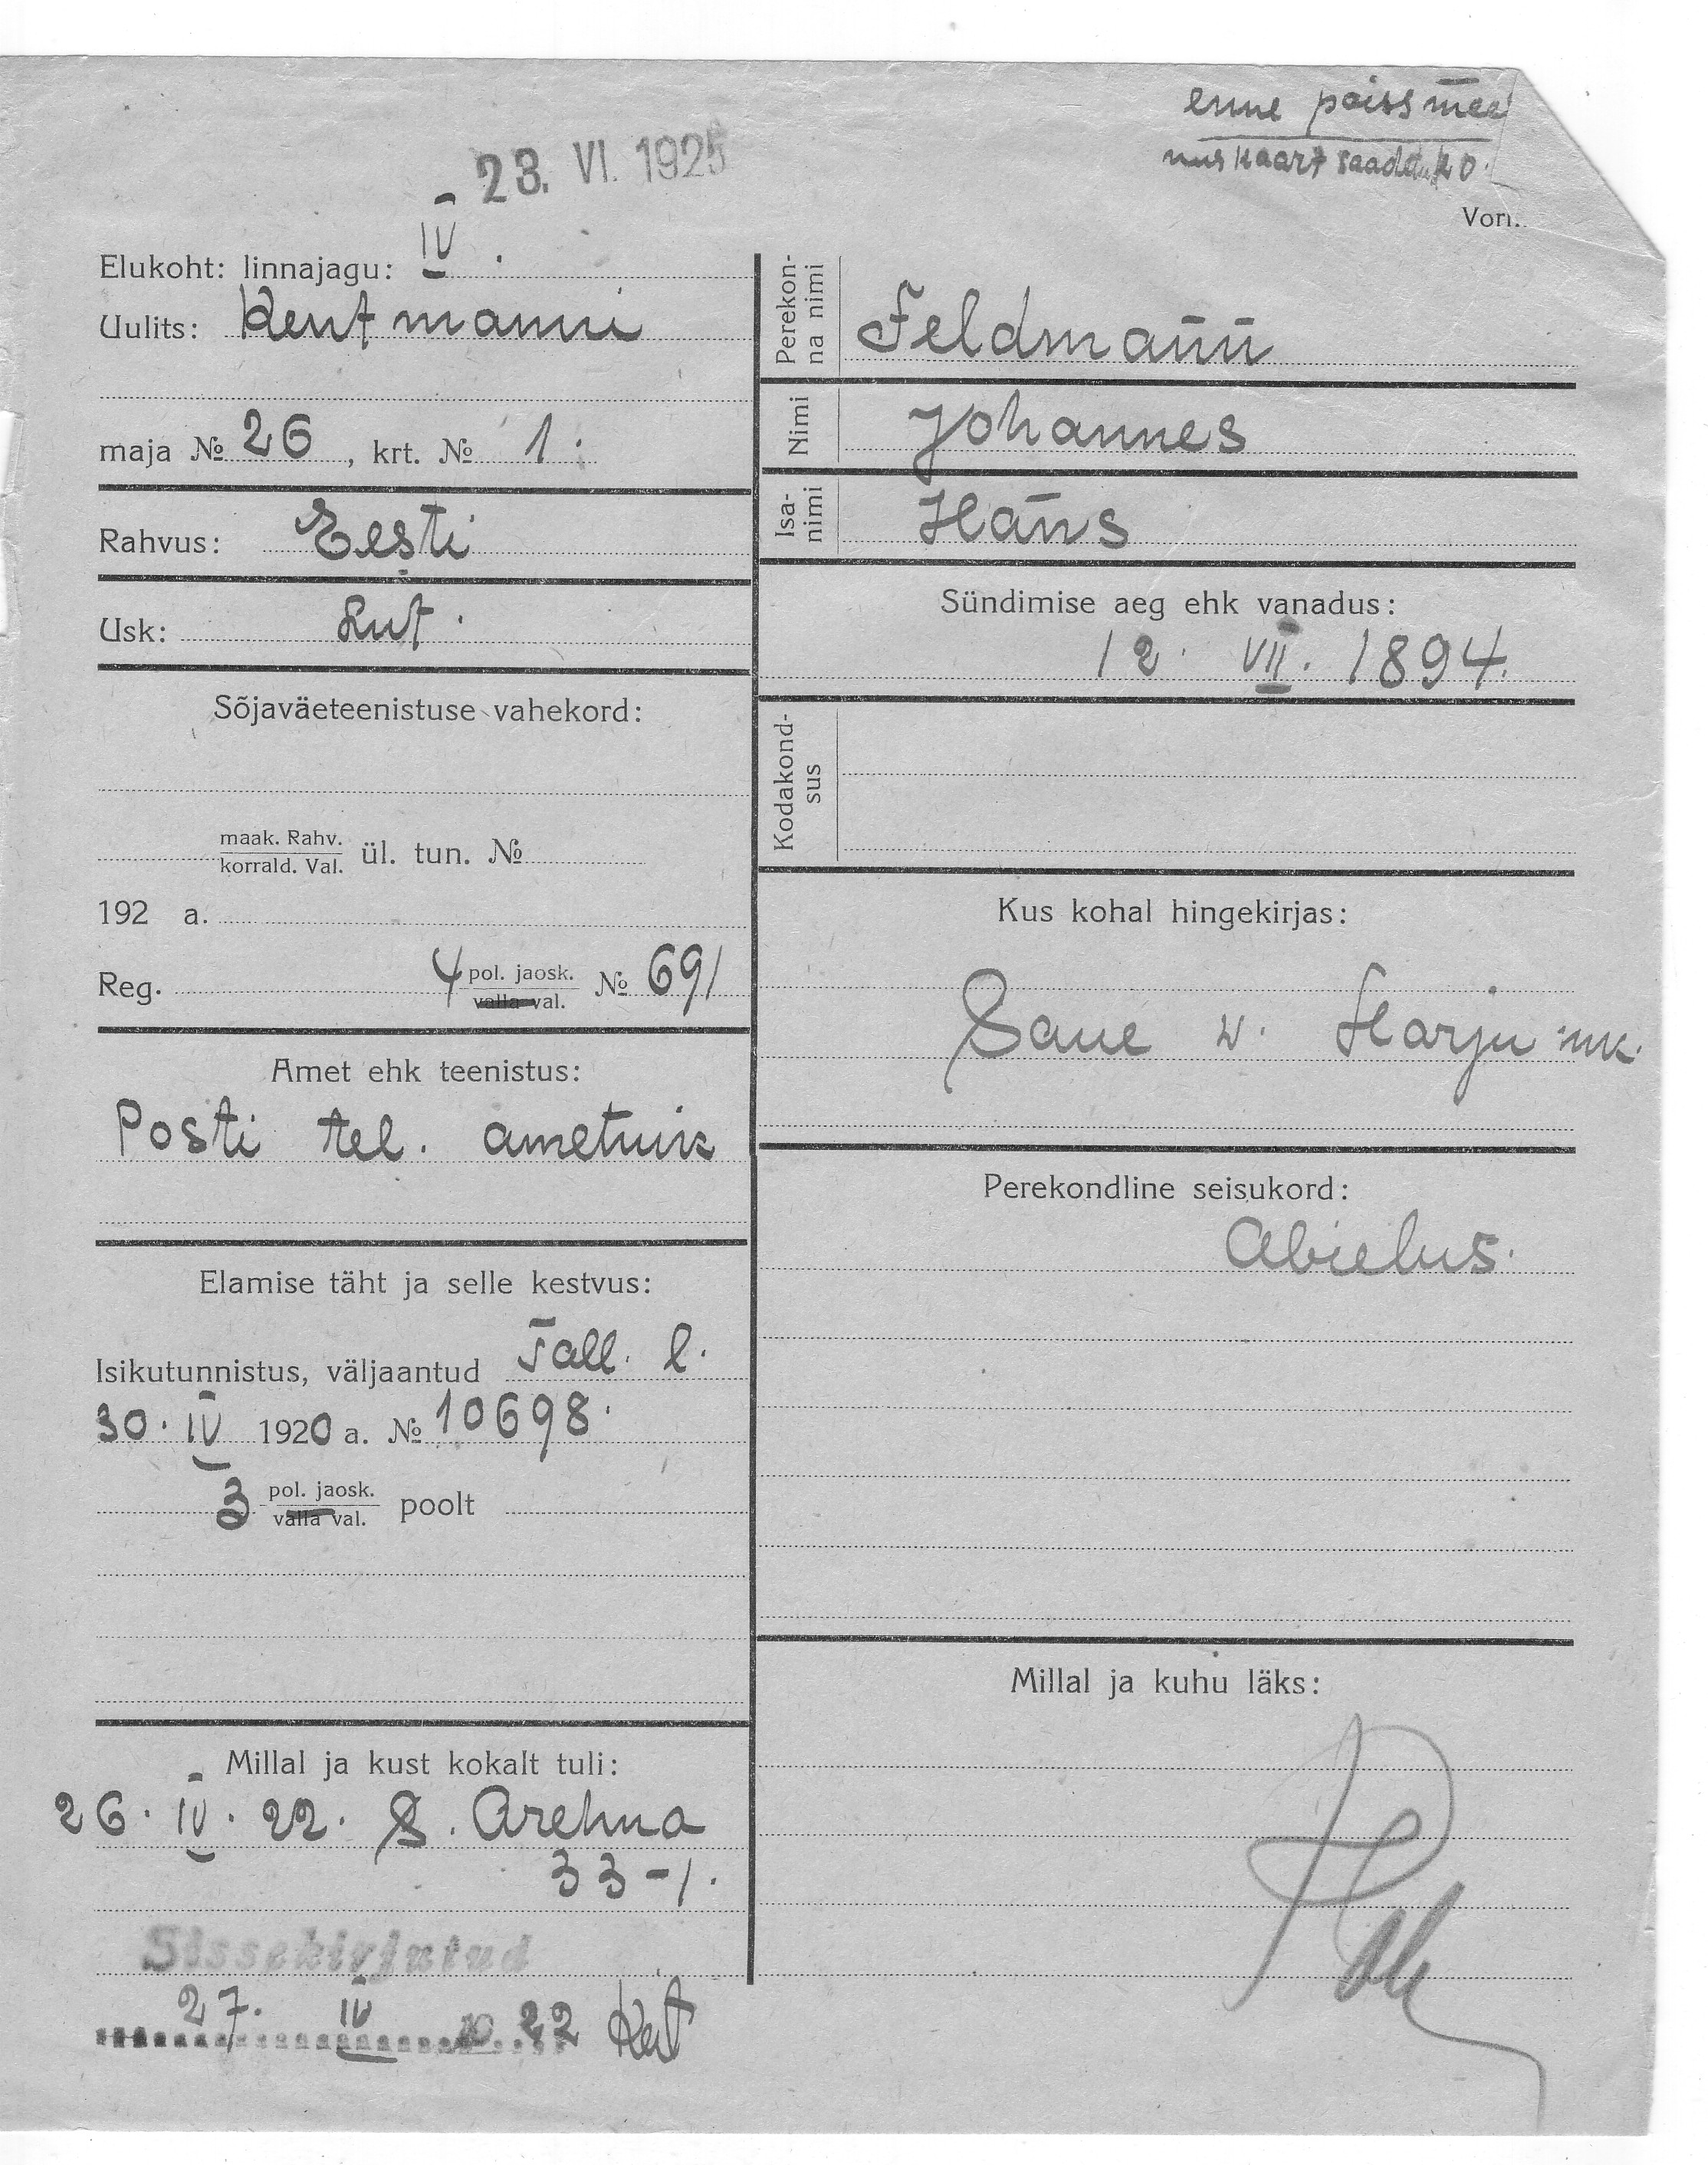 enne poissmee
nuskaart saadetud
23. VI. 1925
Vorr.
Elukoht: linnajagu: IV.
Uulits: Kentmanni
maja № 26, krt. № 1.
Rahvus: Eesti
Usk: Lut.
Sõjaväeteenistuse vahekord:
maak. Rahv.
korrald. Val. ül. tun. №
192 a.
Reg. 4 pol. jaosk. № 691
valla val.
Amet ehk teenistus:
Posti tel. ametnik
Elamise täht ja selle kestvus:
Isikutunnistus, väljaantud Tall. l.
30. IV 1920 a. № 10698.
3 pol. jaosk. poolt
valla val.
Millal ja kust kokalt tuli:
26. IV. 22. S. Arehna
33-1.
Sissekirjutud
27. IV 22
Perekon-
na nimi
Feldmann
Nimi
Johannes
Isa-
nimi
Hans
Sündimise aeg ehk vanadus:
12. VII. 1894.
Kodakond-
sus
Kus kohal hingekirjas:
Saue v. Harju mk.
Perekondline seisukord:
Abielus.
Millal ja kuhu läks: